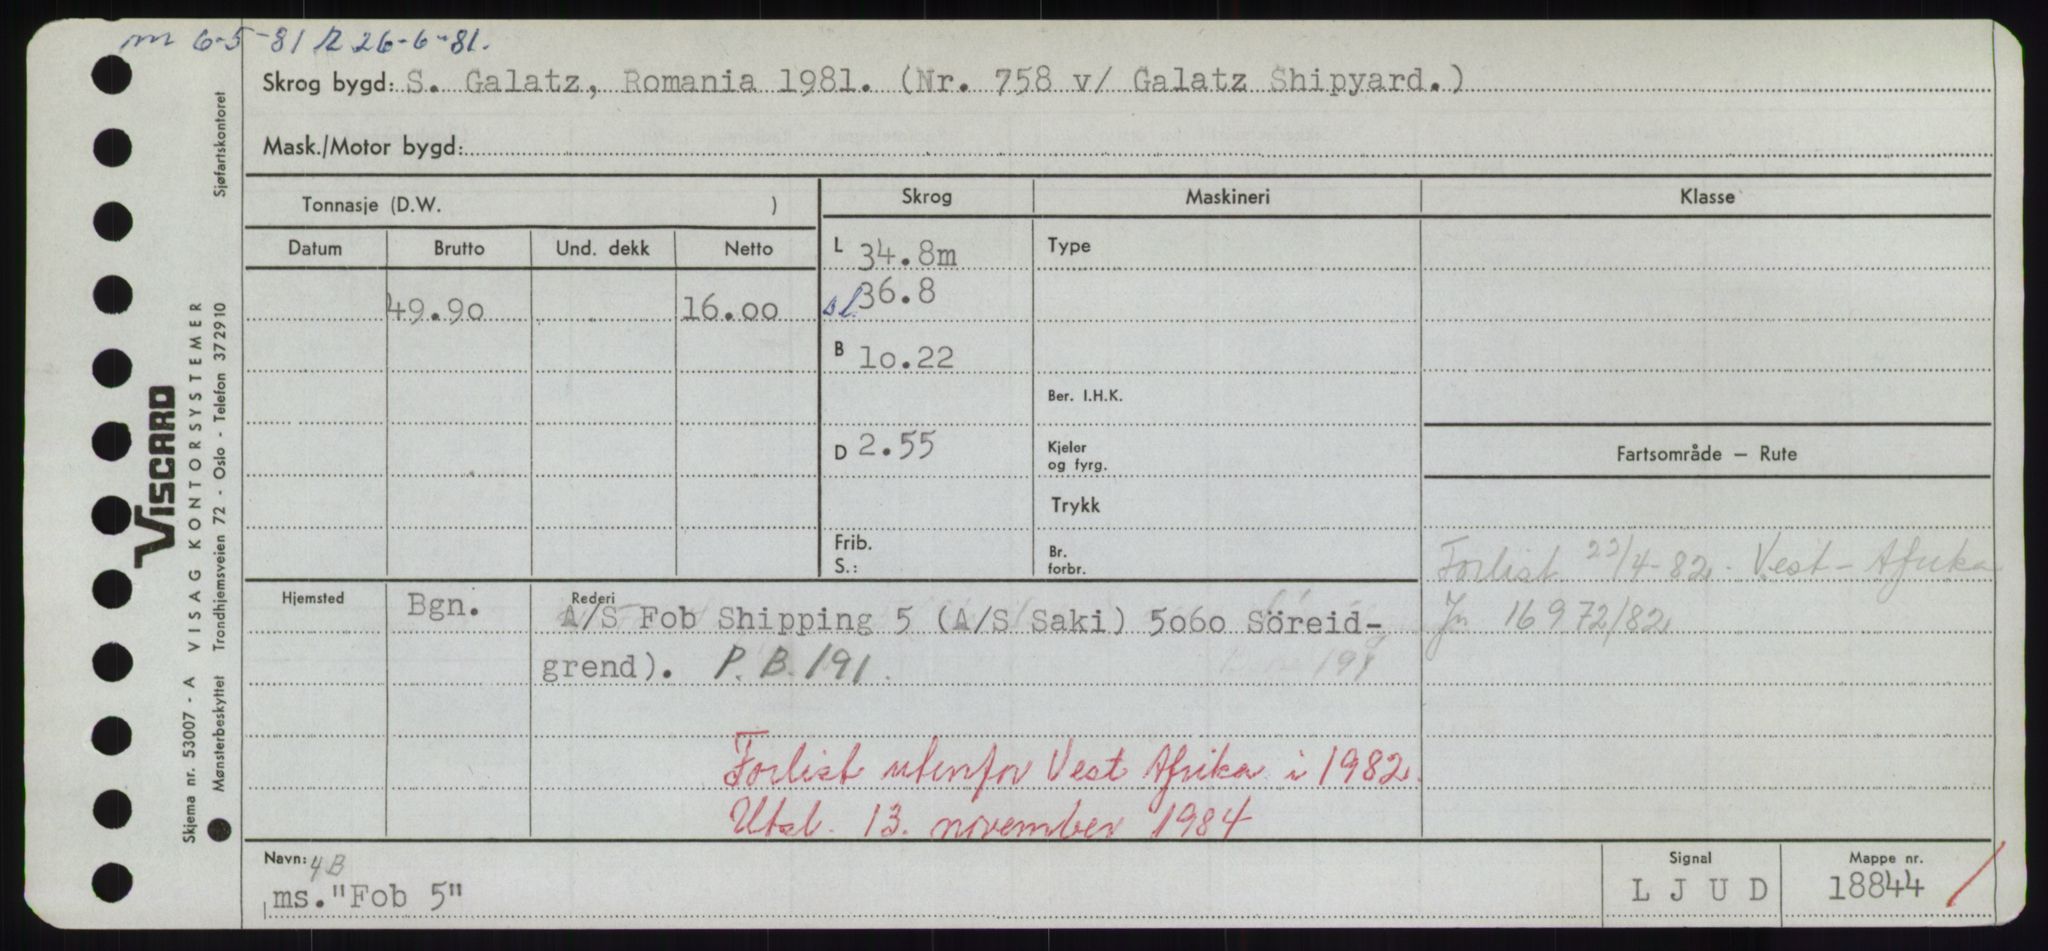 m 6-5-81 R 26-6-81.
Skrog bygd: S. Galatz, Romania 1981. (Nr. 758 v/ Galatz Shipyard.)
Mask./Motor bygd:
Tonnasje (D.W. )
Skrog Maskineri Klasse
Datum Brutto Und. dekk Netto
L 34.8m Type
49.90 16.00 sl. 36.8
B 10.22
Ber. I.H.K.
D 2.55 Kjeler
og fyrg.
Fartsområde – Rute
Trykk
Frib.
S.:
Br.
forbr.
Forlist 22/4-82. Vest-Afrika
Jn 16972/82
Hjemsted Bgn. Rederi A/S Fob Shipping 5 (A/S Saki) 5060 Söreid-
grend). P.B. 191.
Forlist utenfor Vest Afrika i 1982.
Utsl. 13. november 1984
Navn: 4B
ms. "Fob 5"
Signal
L J U D
Mappe nr.
18844
VISCARD
Skjema nr. 53007 - A VISAG KONTORSYSTEMER
Mønsterbeskyttet Trondhjemsveien 72 - Oslo - Telefon 372910 Sjøfartskontoret